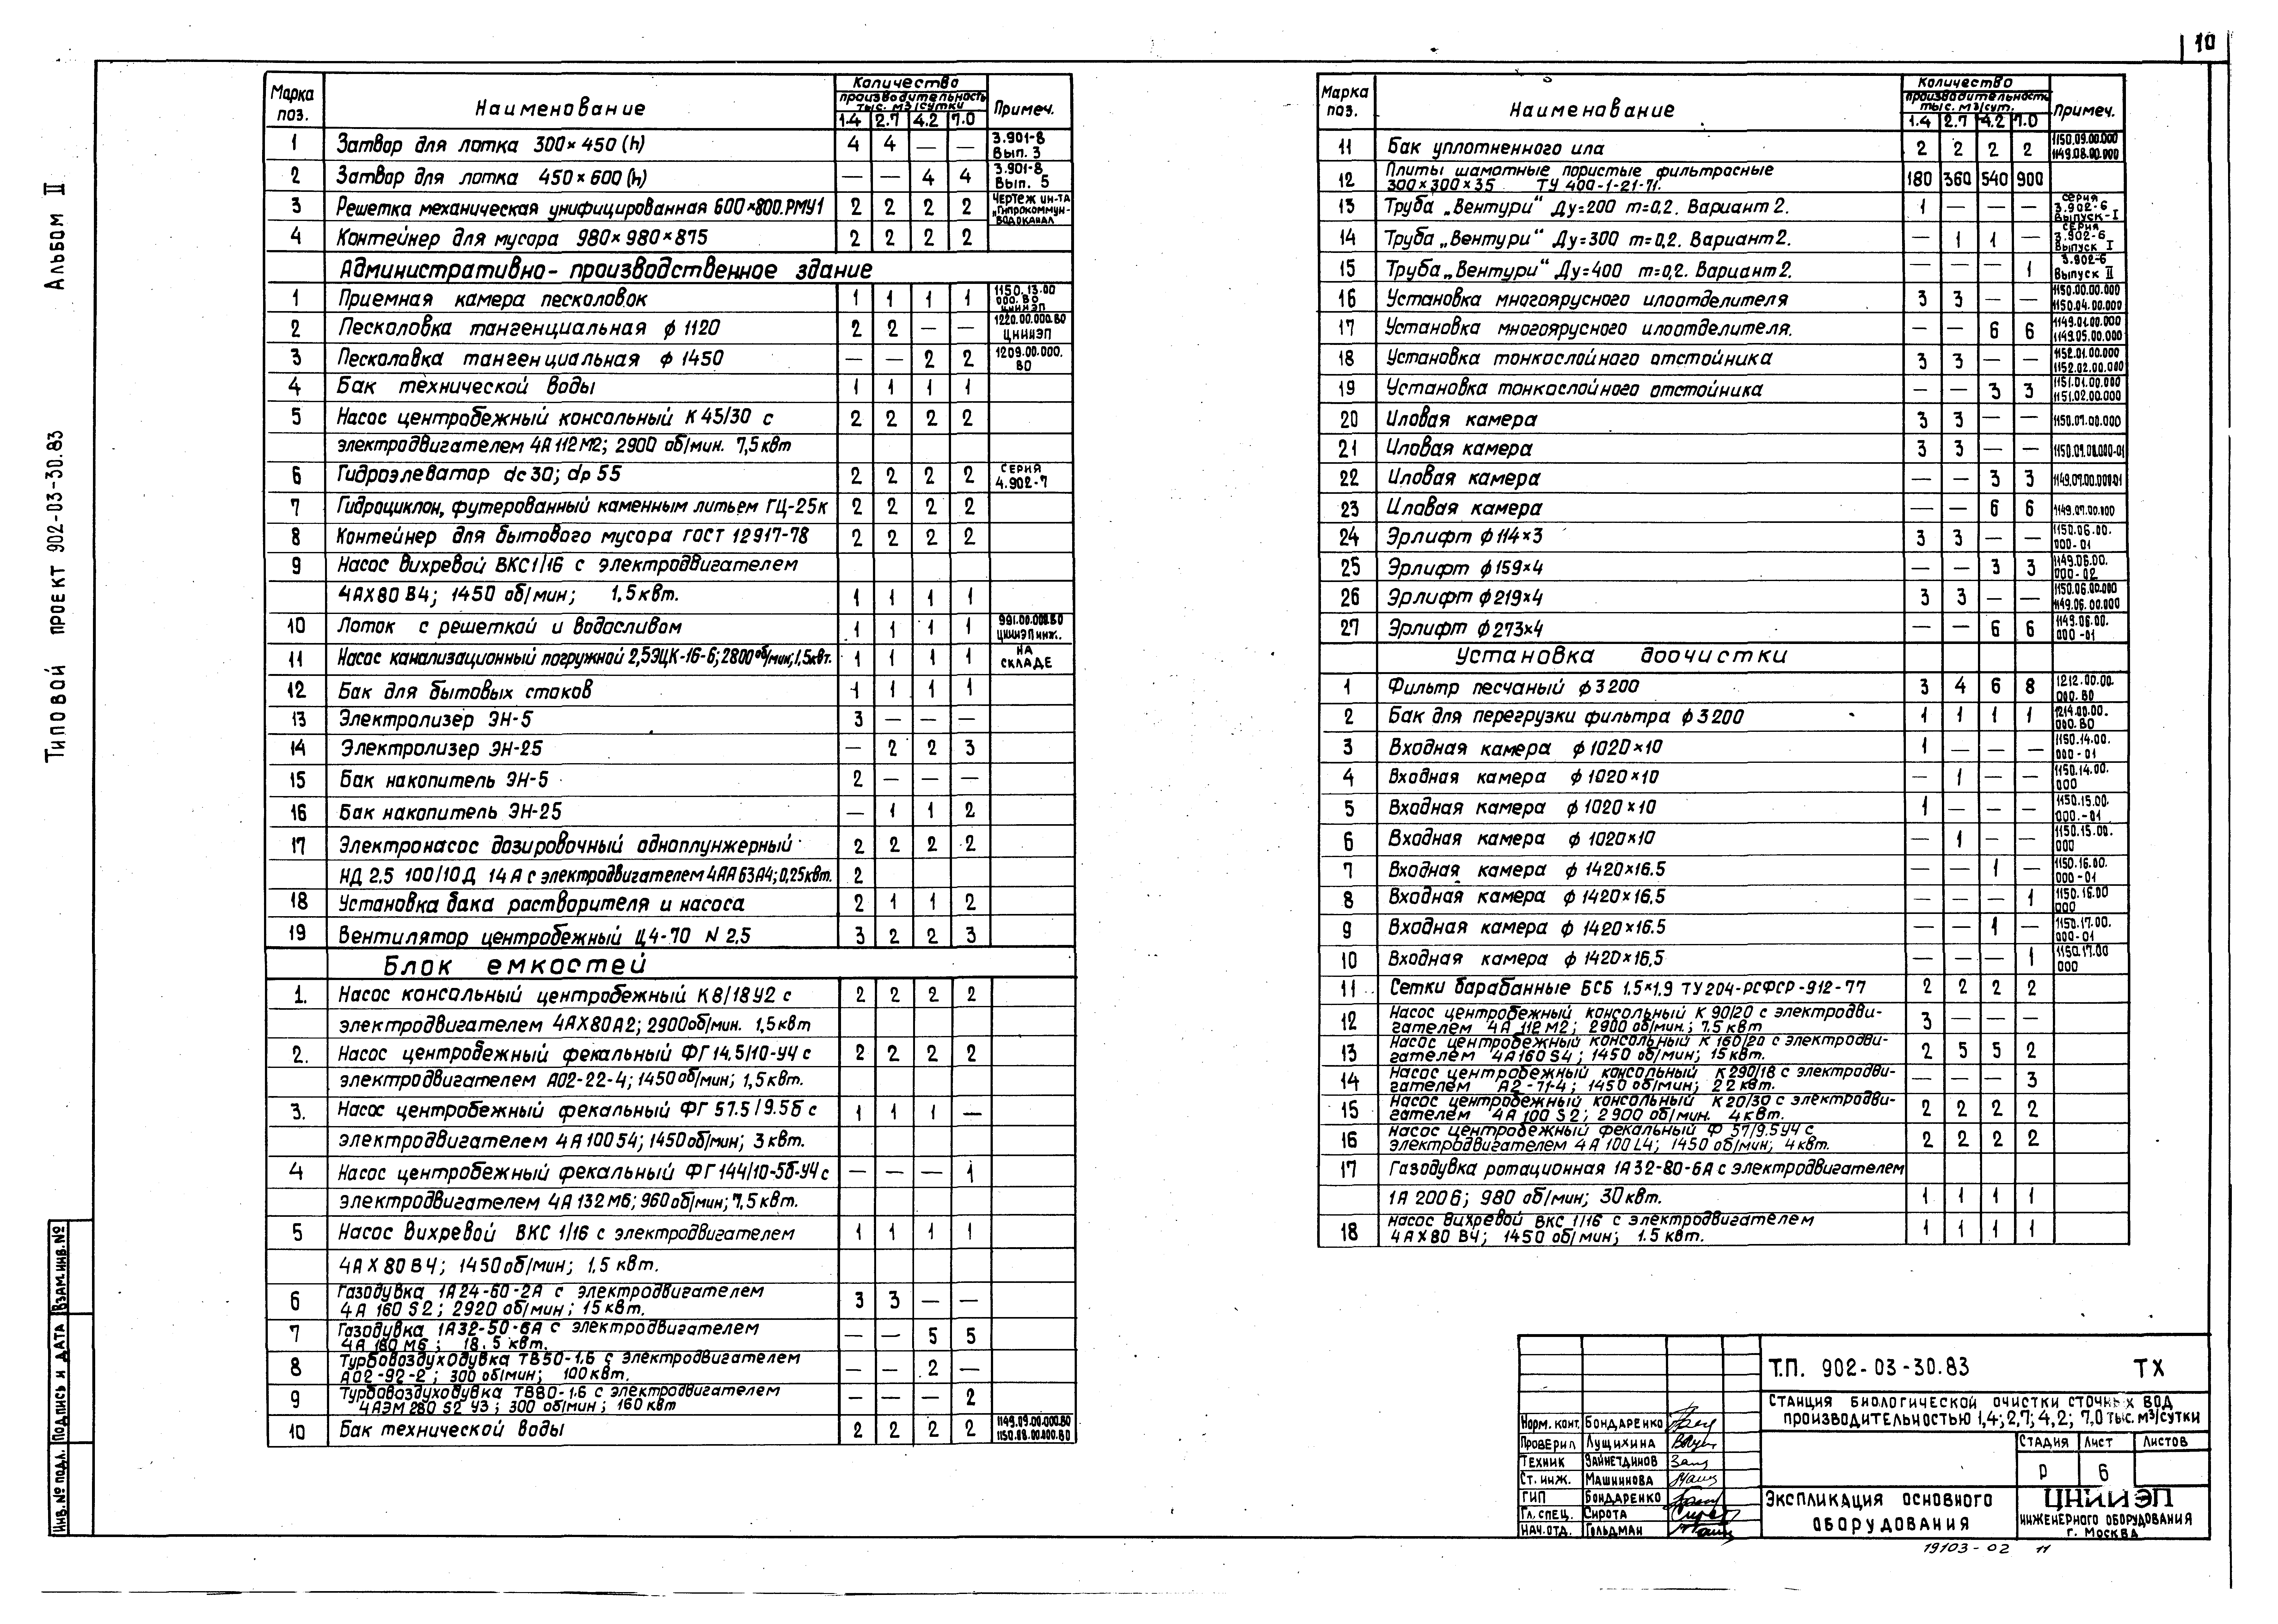 10
Альбом II
Типовой проект 902-03-30.83
Марка поз. Наименование Количество Примеч.
производительность тыс. м3/сутки
1.4 2.7 4.2 7.0
1 Затвор для лотка 300×450 (h) 4 4 — — 3.901-8 Вып. 3
2 Затвор для лотка 450×600 (h) — — 4 4 3.901-8 Вып. 5
3 Решетка механическая унифицированная 600×800.РМУ1 2 2 2 2 Чертеж ин-та „Гипрокоммунводоканал"
4 Контейнер для мусора 980×980×875 2 2 2 2
Административно-производственное здание
1 Приемная камера песколовок 1 1 1 1 1150.13.00 000.ВО ЦНИИЭП
2 Песколовка тангенциальная ф 1120 2 2 — — 1220.00.000.ВО ЦНИИЭП
3 Песколовка тангенциальная ф 1450 — — 2 2 1209.00.000. ВО
4 Бак технической воды 1 1 1 1
5 Насос центробежный консольный К 45/30 с 2 2 2 2
электродвигателем 4А112М2; 2900 об/мин. 7,5 квт
6 Гидроэлеватор dc 30; dр 55 2 2 2 2 серия 4.902-7
7 Гидроциклон, футерованный каменным литьем ГЦ-25к 2 2 2 2
8 Контейнер для бытового мусора ГОСТ 12917-78 2 2 2 2
9 Насос вихревой ВКС1/16 с электродвигателем
4АХ80 В4; 1450 об/мин; 1,5 квт. 1 1 1 1
10 Лоток с решеткой и водосливом 1 1 1 1 991.00.000.ВО ЦНИИЭП инж.
11 Насос канализационный погружной 2,5ЭЦК-16-6; 2800 об/мин; 1,5квт. 1 1 1 1 на складе
12 Бак для бытовых стоков 1 1 1 1
13 Электролизер ЭН-5 3 — — —
14 Электролизер ЭН-25 — 2 2 3
15 Бак накопитель ЭН-5 2 — — —
16 Бак накопитель ЭН-25 — 1 1 2
17 Электронасос дозировочный одноплунжерный 2 2 2 2
НД 2.5 100/10Д 14А с электродвигателем 4АА63А4; 0,25квт. 2
18 Установка бака растворителя и насоса 2 1 1 2
19 Вентилятор центробежный Ц4-70 N 2.5 3 2 2 3
Блок емкостей
1. Насос консольный центробежный К 8/18У2 с 2 2 2 2
электродвигателем 4АХ80А2; 2900об/мин. 1,5 квт
2. Насос центробежный фекальный ФГ 14,5/10-У4 с 2 2 2 2
электродвигателем А02-22-4; 1450 об/мин; 1,5квт.
3. Насос центробежный фекальный ФГ 57.5/9.5б с 1 1 1 —
электродвигателем 4А100S4; 1450 об/мин; 3 квт.
4 Насос центробежный фекальный ФГ144/10-5б-У4 с — — — 1
электродвигателем 4А 132 М6; 960 об/мин; 7,5 квт.
5 Насос вихревой ВКС 1/16 с электродвигателем 1 1 1 1
4АХ 80 В4; 1450об/мин; 1,5 квт.
6 Газодувка 1А24-60-2А с электродвигателем 3 3 — —
4 А 160 S2; 2920 об/мин; 15 квт.
7 Газодувка 1А32-50-6А с электродвигателем — — 5 5
4А 180 М6; 18.5 квт.
8 Турбовоздуходувка ТВ50-1.6 с электродвигателем — — 2 —
А02-92-2; 300 об/мин; 100квт.
9 Турбовоздуходувка ТВ80-1.6 с электродвигателем — — — 2
4АЗМ 280 S2 У3; 300 об/мин; 160 квт
10 Бак технической воды 2 2 2 2 1149.09.00.000.ВО 1150.08.00.000.ВО
Марка поз. Наименование Количество Примеч.
производительность тыс. м3/сут.
1.4 2.7 4.2 7.0
11 Бак уплотненного ила 2 2 2 2 1150.09.00.000 1149.08.00.000
12 Плиты шамотные пористые фильтросные 300×300×35 ТУ 400-1-21-71. 180 360 540 900
13 Труба „Вентури" Ду=200 m=0,2. Вариант 2. 1 — — — серия 3.902-6 Выпуск-I
14 Труба „Вентури" Ду=300 m=0,2. Вариант 2. — 1 1 — серия 3.902-6 Выпуск I
15 Труба „Вентури" Ду=400 m=0,2. Вариант 2. — — — 1 3.902-6 Выпуск II
16 Установка многоярусного илоотделителя 3 3 — — 1150.00.00.000 1150.04.00.000
17 Установка многоярусного илоотделителя. — — 6 6 1149.01.00.000 1149.05.00.000
18 Установка тонкослойного отстойника 3 3 — — 1152.01.00.000 1152.02.00.000
19 Установка тонкослойного отстойника — — 3 3 1151.01.00.000 1151.02.00.000
20 Иловая камера 3 3 — — 1150.07.00.000
21 Иловая камера 3 3 — — 1150.07.00.000-01
22 Иловая камера — — 3 3 1149.07.00.000-01
23 Иловая камера — — 6 6 1149.07.00.000
24 Эрлифт ф 114×3 3 3 — — 1150.06.00. 000-01
25 Эрлифт ф 159×4 — — 3 3 1149.06.00. 000-02
26 Эрлифт ф 219×4 3 3 — — 1150.06.00.000 1149.06.00.000
27 Эрлифт ф 273×4 — — 6 6 1149.06.00. 000-01
Установка доочистки
1 Фильтр песчаный ф 3200 3 4 6 8 1212.00.00. 000.ВО
2 Бак для перегрузки фильтра ф 3200 1 1 1 1 1214.00.00. 000.ВО
3 Входная камера ф 1020×10 1 — — — 1150.14.00. 000-01
4 Входная камера ф 1020×10 — 1 — — 1150.14.00. 000
5 Входная камера ф 1020×10 1 — — — 1150.15.00. 000.-01
6 Входная камера ф 1020×10 — 1 — — 1150.15.00. 000
7 Входная камера ф 1420×16.5 — — 1 — 1150.16.00. 000-01
8 Входная камера ф 1420×16,5 — — — 1 1150.16.00 000
9 Входная камера ф 1420×16.5 — — 1 — 1150.17.00. 000-01
10 Входная камера ф 1420×16,5 — — — 1 1150.17.00 000
11 Сетки барабанные БСБ 1.5×1.9 ТУ 204-РСФСР-912-77 2 2 2 2
12 Насос центробежный консольный К 90/20 с электродви- 3 — — —
гателем 4А 112 М2; 2900 об/мин.; 7.5 квт
13 Насос центробежный консольный К 160/20 с электродви- 2 5 5 2
гателем 4А160 S4; 1450 об/мин; 15 квт.
14 Насос центробежный консольный К290/18 с электродви- — — — 3
гателем А2-71-4; 1450 об/мин; 22 квт.
15 Насос центробежный консольный К 20/30 с электродви- 2 2 2 2
гателем 4А 100 S2; 2900 об/мин. 4 квт.
16 Насос центробежный фекальный Ф 57/9.5У4 с 2 2 2 2
электродвигателем 4А 100L4; 1450 об/мин; 4квт.
17 Газодувка ротационная 1А32-80-6А с электродвигателем
1А 200 6; 980 об/мин; 30 квт. 1 1 1 1
18 Насос вихревой ВКС 1/16 с электродвигателем 1 1 1 1
4АХ80 В4; 1450 об/мин; 1.5 квт.
Т.П. 902-03-30.83 ТХ
Станция биологической очистки сточных вод
производительностью 1,4; 2,7; 4,2; 7,0 тыс. м3/сутки
Норм. конт. Бондаренко
Проверил Лущихина
Техник Зайнетдинов
Ст. инж. Машинова
ГИП Бондаренко
Гл. спец. Сирота
Нач. отд. Гольдман
Стадия Лист Листов
Р 6
Экспликация основного
оборудования
ЦНИИЭП
инженерного оборудования
г. Москва
19103-02 11
Инв. № подл. Подпись и дата Взам. инв. №